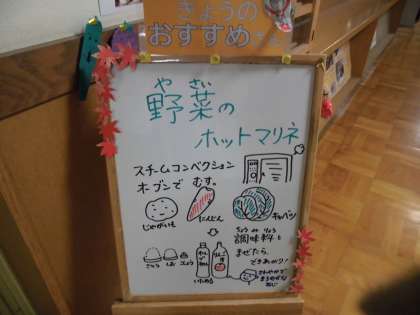 きょうの
おすすめ
や さい
野菜の
ホットマリネ
スチームコンベクション
オーブンで むす。
じゃがいも
にんじん
キャベツ
ちょう み りょう
調味料と
まぜたら、
できあがり!
さとう
しお
さわやかで
まろやかな
あじ